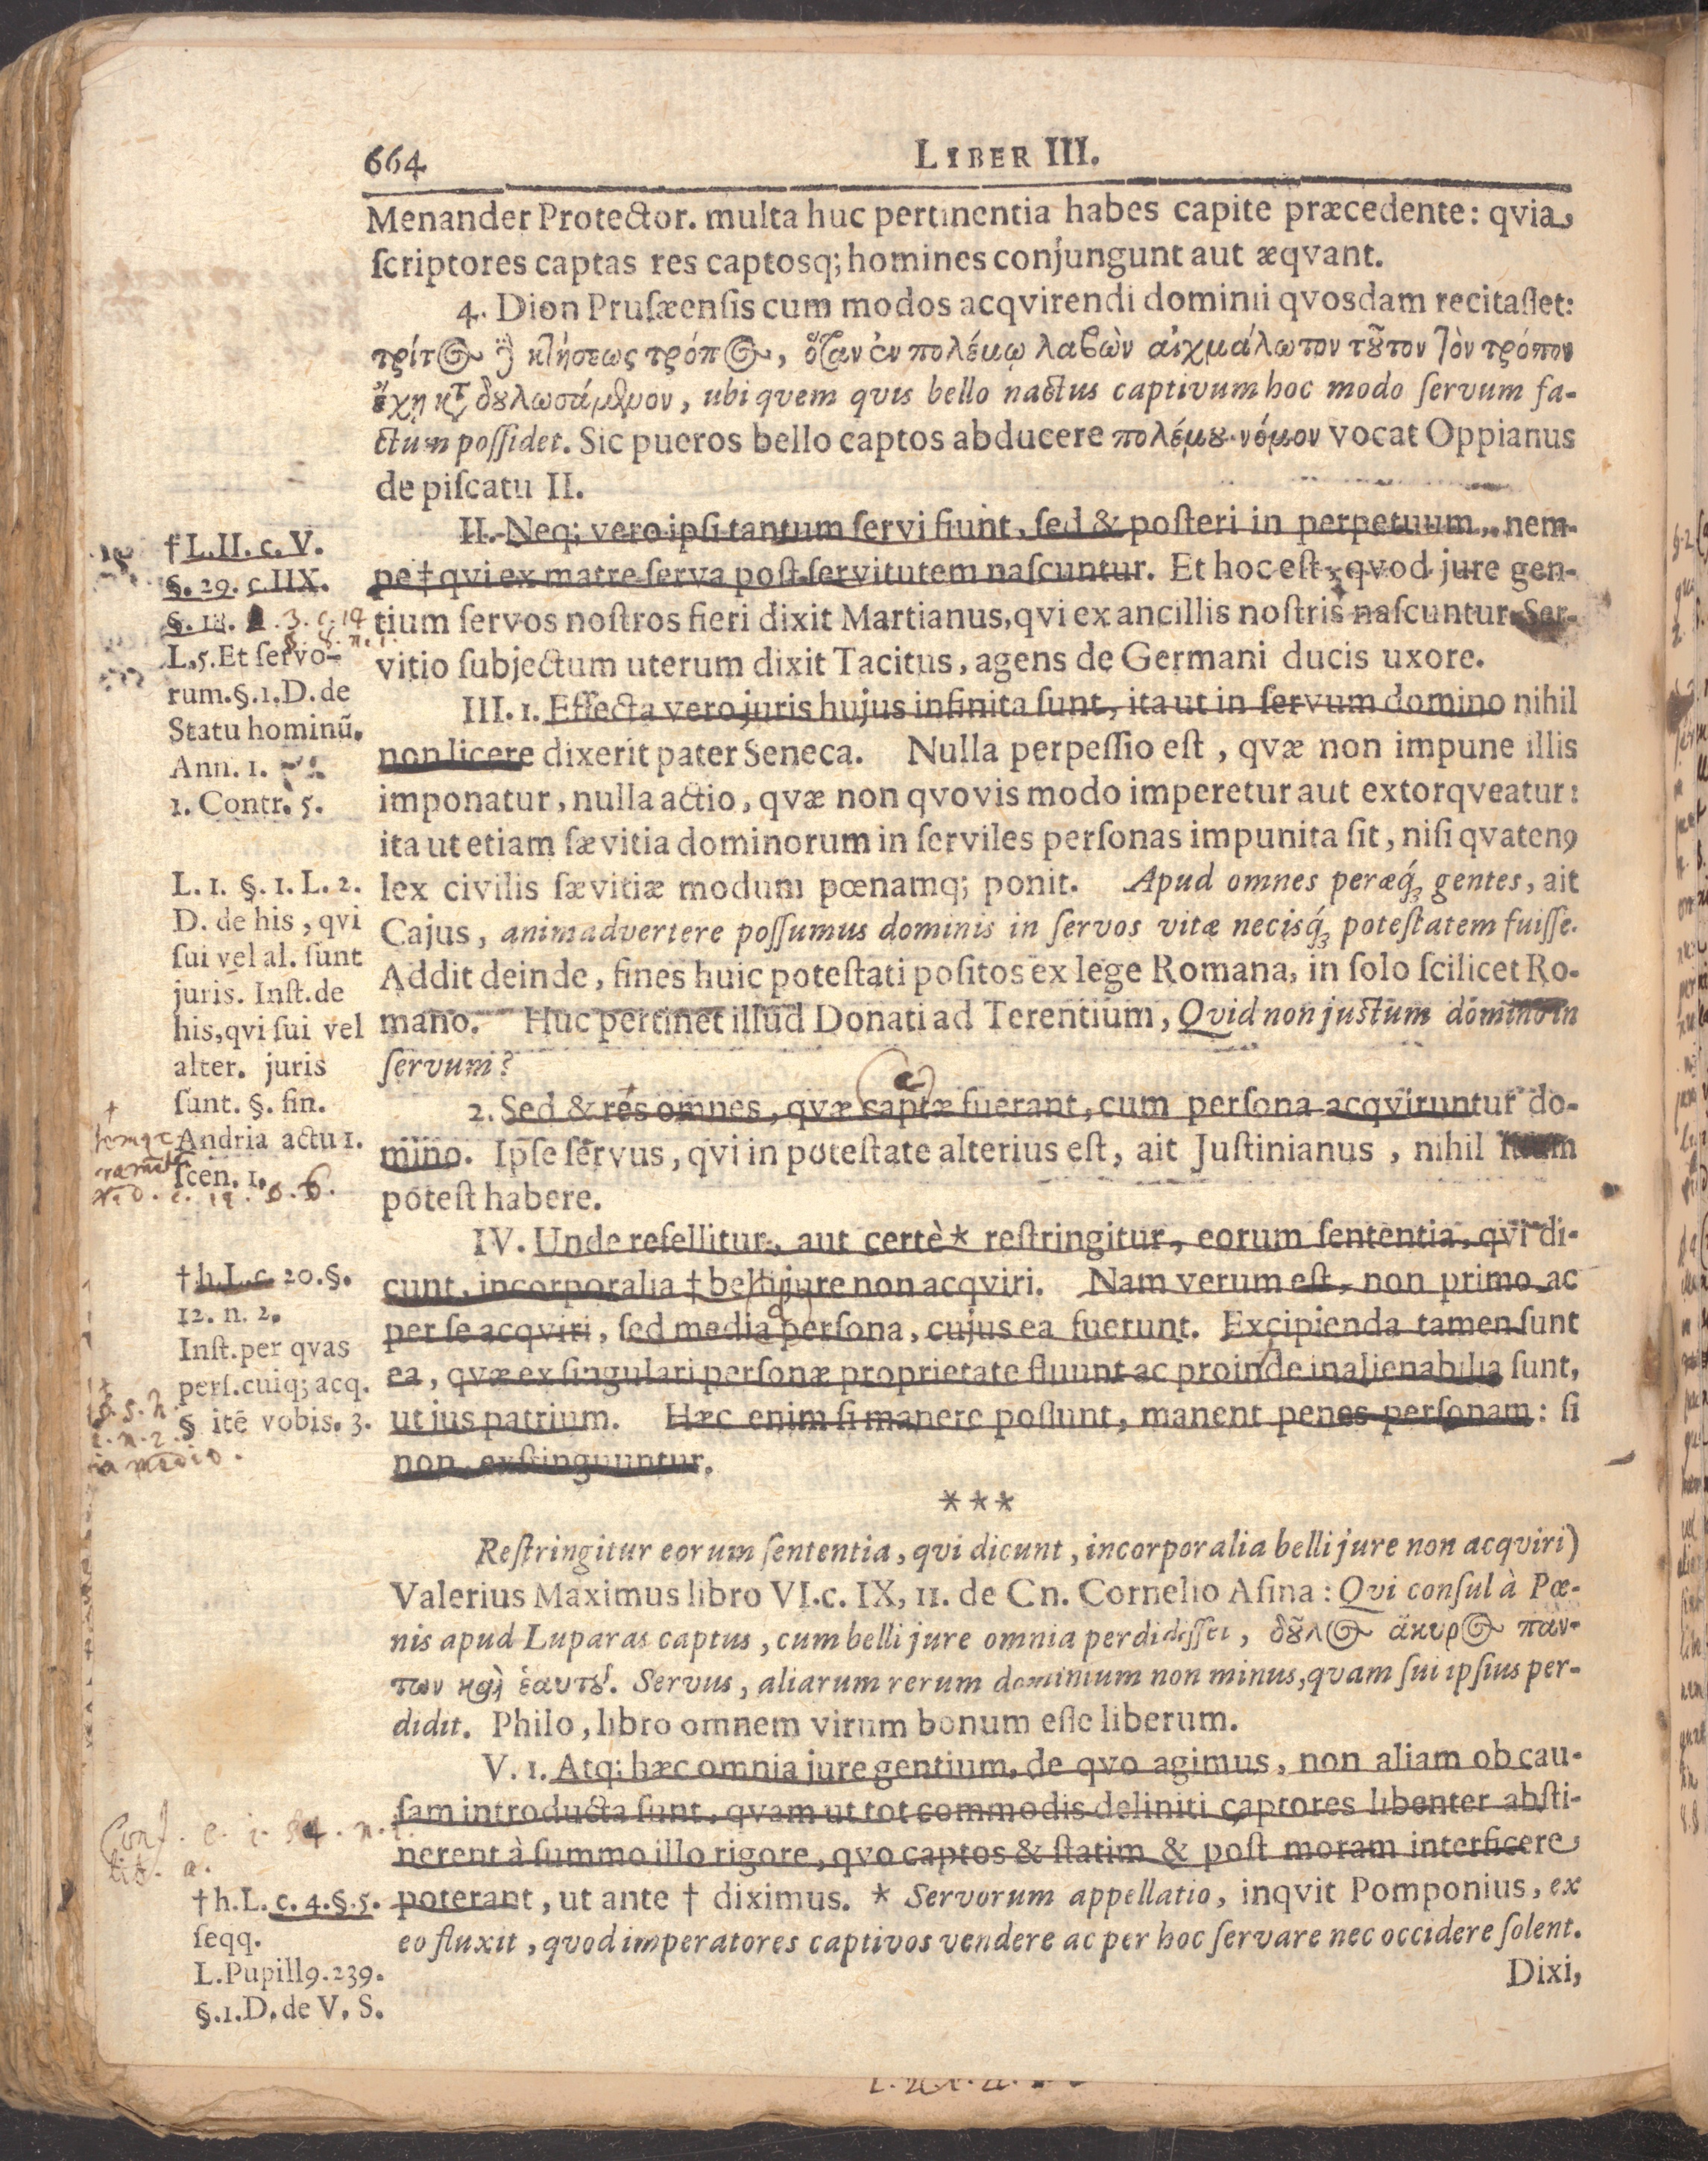 664
LIBER III.
Menander Protector. multa huc pertinentia habes capite præcedente: qvia
ſcriptores captas res captosq; homines conjungunt aut æqvant.
4. Dion Pruſæenſis cum modos acqvirendi dominii qvosdam recitaſſet:
τρίτος ἢ κτήσεως τρόπος, ὅταν ἐν πολέμῳ λαβὼν αἰχμάλωτον τȣ͂τον τὸν τρόπον
ἔχῃ δȣλωσάμενον, ubi quem qvis bello nactus captivum hoc modo ſervum fa-
ctum poſſidet. Sic pueros bello captos abducere πολέμȣ νόμον vocat Oppianus
de piſcatu II.
II. Neq; vero ipſi tantum ſervi fiunt, ſed & poſteri in perpetuum, nem-
pe † qvi ex matre ſerva poſt ſervitutem naſcuntur. Et hoc eſt qvod jure gen-
tium ſervos noſtros fieri dixit Martianus, qvi ex ancillis noſtris naſcuntur. Ser-
vitio ſubjectum uterum dixit Tacitus, agens de Germani ducis uxore.
III. 1. Effecta vero juris hujus infinita ſunt, ita ut in ſervum domino nihil
non licere dixerit pater Seneca. Nulla perpeſſio eſt, qvæ non impune illis
imponatur, nulla actio, qvæ non qvovis modo imperetur aut extorqveatur:
ita ut etiam ſævitia dominorum in ſerviles perſonas impunita ſit, niſi qvatenꝯ
lex civilis ſævitiæ modum pœnamq; ponit. Apud omnes peræq́; gentes, ait
Cajus, animadvertere poſſumus dominis in ſervos vitæ necisq́; poteſtatem fuiſſe.
Addit deinde, fines huic poteſtati poſitos ex lege Romana, in ſolo ſcilicet Ro-
mano. Huc pertinet illud Donati ad Terentium, Qvid non juſtum domino in
ſervum?
2. Sed & res omnes, qvæ captæ fuerant, cum perſona acqviruntur do-
mino. Ipſe ſervus, qvi in poteſtate alterius eſt, ait Juſtinianus, nihil ſuum
poteſt habere.
IV. Unde refellitur, aut certè * reſtringitur, eorum ſententia, qvi di-
cunt, incorporalia † belli jure non acqviri. Nam verum eſt, non primo ac
per ſe acqviri, ſed media perſona, cujus ea fuerunt. Excipienda tamen ſunt
ea, qvæ ex ſingulari perſonæ proprietate fluunt ac proinde inalienabilia ſunt,
ut jus patrium. Hæc enim ſi manere poſſunt, manent penes perſonam: ſi
non, exſtinguuntur.
***
Reſtringitur eorum ſententia, qvi dicunt, incorporalia belli jure non acqviri)
Valerius Maximus libro VI. c. IX, 11. de Cn. Cornelio Aſina: Qvi conſul à Pœ-
nis apud Luparas captus, cum belli jure omnia perdidiſſet, δȣ͂λος ἄκυρος πάν-
των καὶ ἑαυτȣ͂. Servus, aliarum rerum dominium non minus, qvam ſui ipſius per-
didit. Philo, libro omnem virum bonum eſſe liberum.
V. 1. Atq; hæc omnia jure gentium, de qvo agimus, non aliam ob cau-
ſam introducta ſunt, qvam ut tot commodis deliniti captores libenter abſti-
nerent à ſummo illo rigore, qvo captos & ſtatim & poſt moram interficere
poterant, ut ante † diximus. * Servorum appellatio, inqvit Pomponius, ex
eo fluxit, qvod imperatores captivos vendere ac per hoc ſervare nec occidere ſolent.
Dixi,
† L. II. c. V.
§. 29. c. IIX.
§. 18.
L. 5. Et ſervo-
rum. §. 1. D. de
Statu hominũ.
Ann. 1.
1. Contr. 5.
L. 1. §. 1. L. 2.
D. de his, qvi
ſui vel al. ſunt
juris. Inſt. de
his, qvi ſui vel
alter. juris
ſunt. §. fin.
Andria actu 1.
ſcen. 1.
† h. L. c. 20. §.
12. n. 2.
Inſt. per qvas
perſ. cuiq; acq.
§ itẽ vobis. 3.
in medio.
Conf.
lit. a.
† h. L. c. 4. §. 5.
ſeqq.
L. Pupillꝯ. 239.
§. 1. D. de V. S.